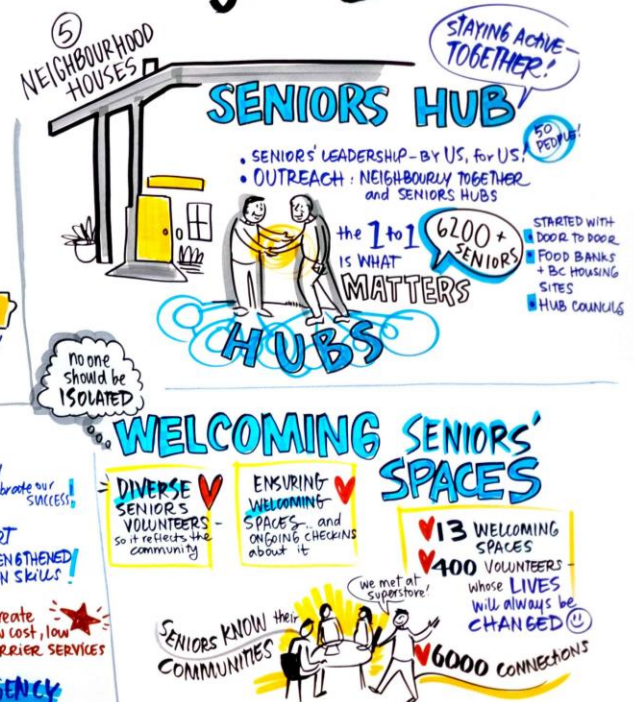 5
NEIGHBOURHOOD
HOUSES
STAYING ACTIVE-
TOGETHER!
SENIORS HUB
50
PEOPLE!
• SENIORS' LEADERSHIP - BY US, for US!
• OUTREACH: NEIGHBOURLY TOGETHER
and SENIORS HUBS
the 1 to 1
IS WHAT
MATTERS
6200+
SENIORS
STARTED WITH
DOOR TO DOOR
FOOD BANKS
+ BC HOUSING
SITES
HUB COUNCILS
HUBS
no one
should be
ISOLATED
WELCOMING SENIORS'
SPACES
DIVERSE
SENIORS
VOLUNTEERS -
so it reflects the
community
ENSURING
WELCOMING
SPACES.. and
ONGOING CHECKINS
about it
13 WELCOMING
SPACES
400 VOLUNTEERS -
whose LIVES
will always be
CHANGED
6000 CONNECTIONS
we met at
superstore!
SENIORS KNOW their
COMMUNITIES
our
SUCCESS!
SKILLS!
COST, low
SERVICES